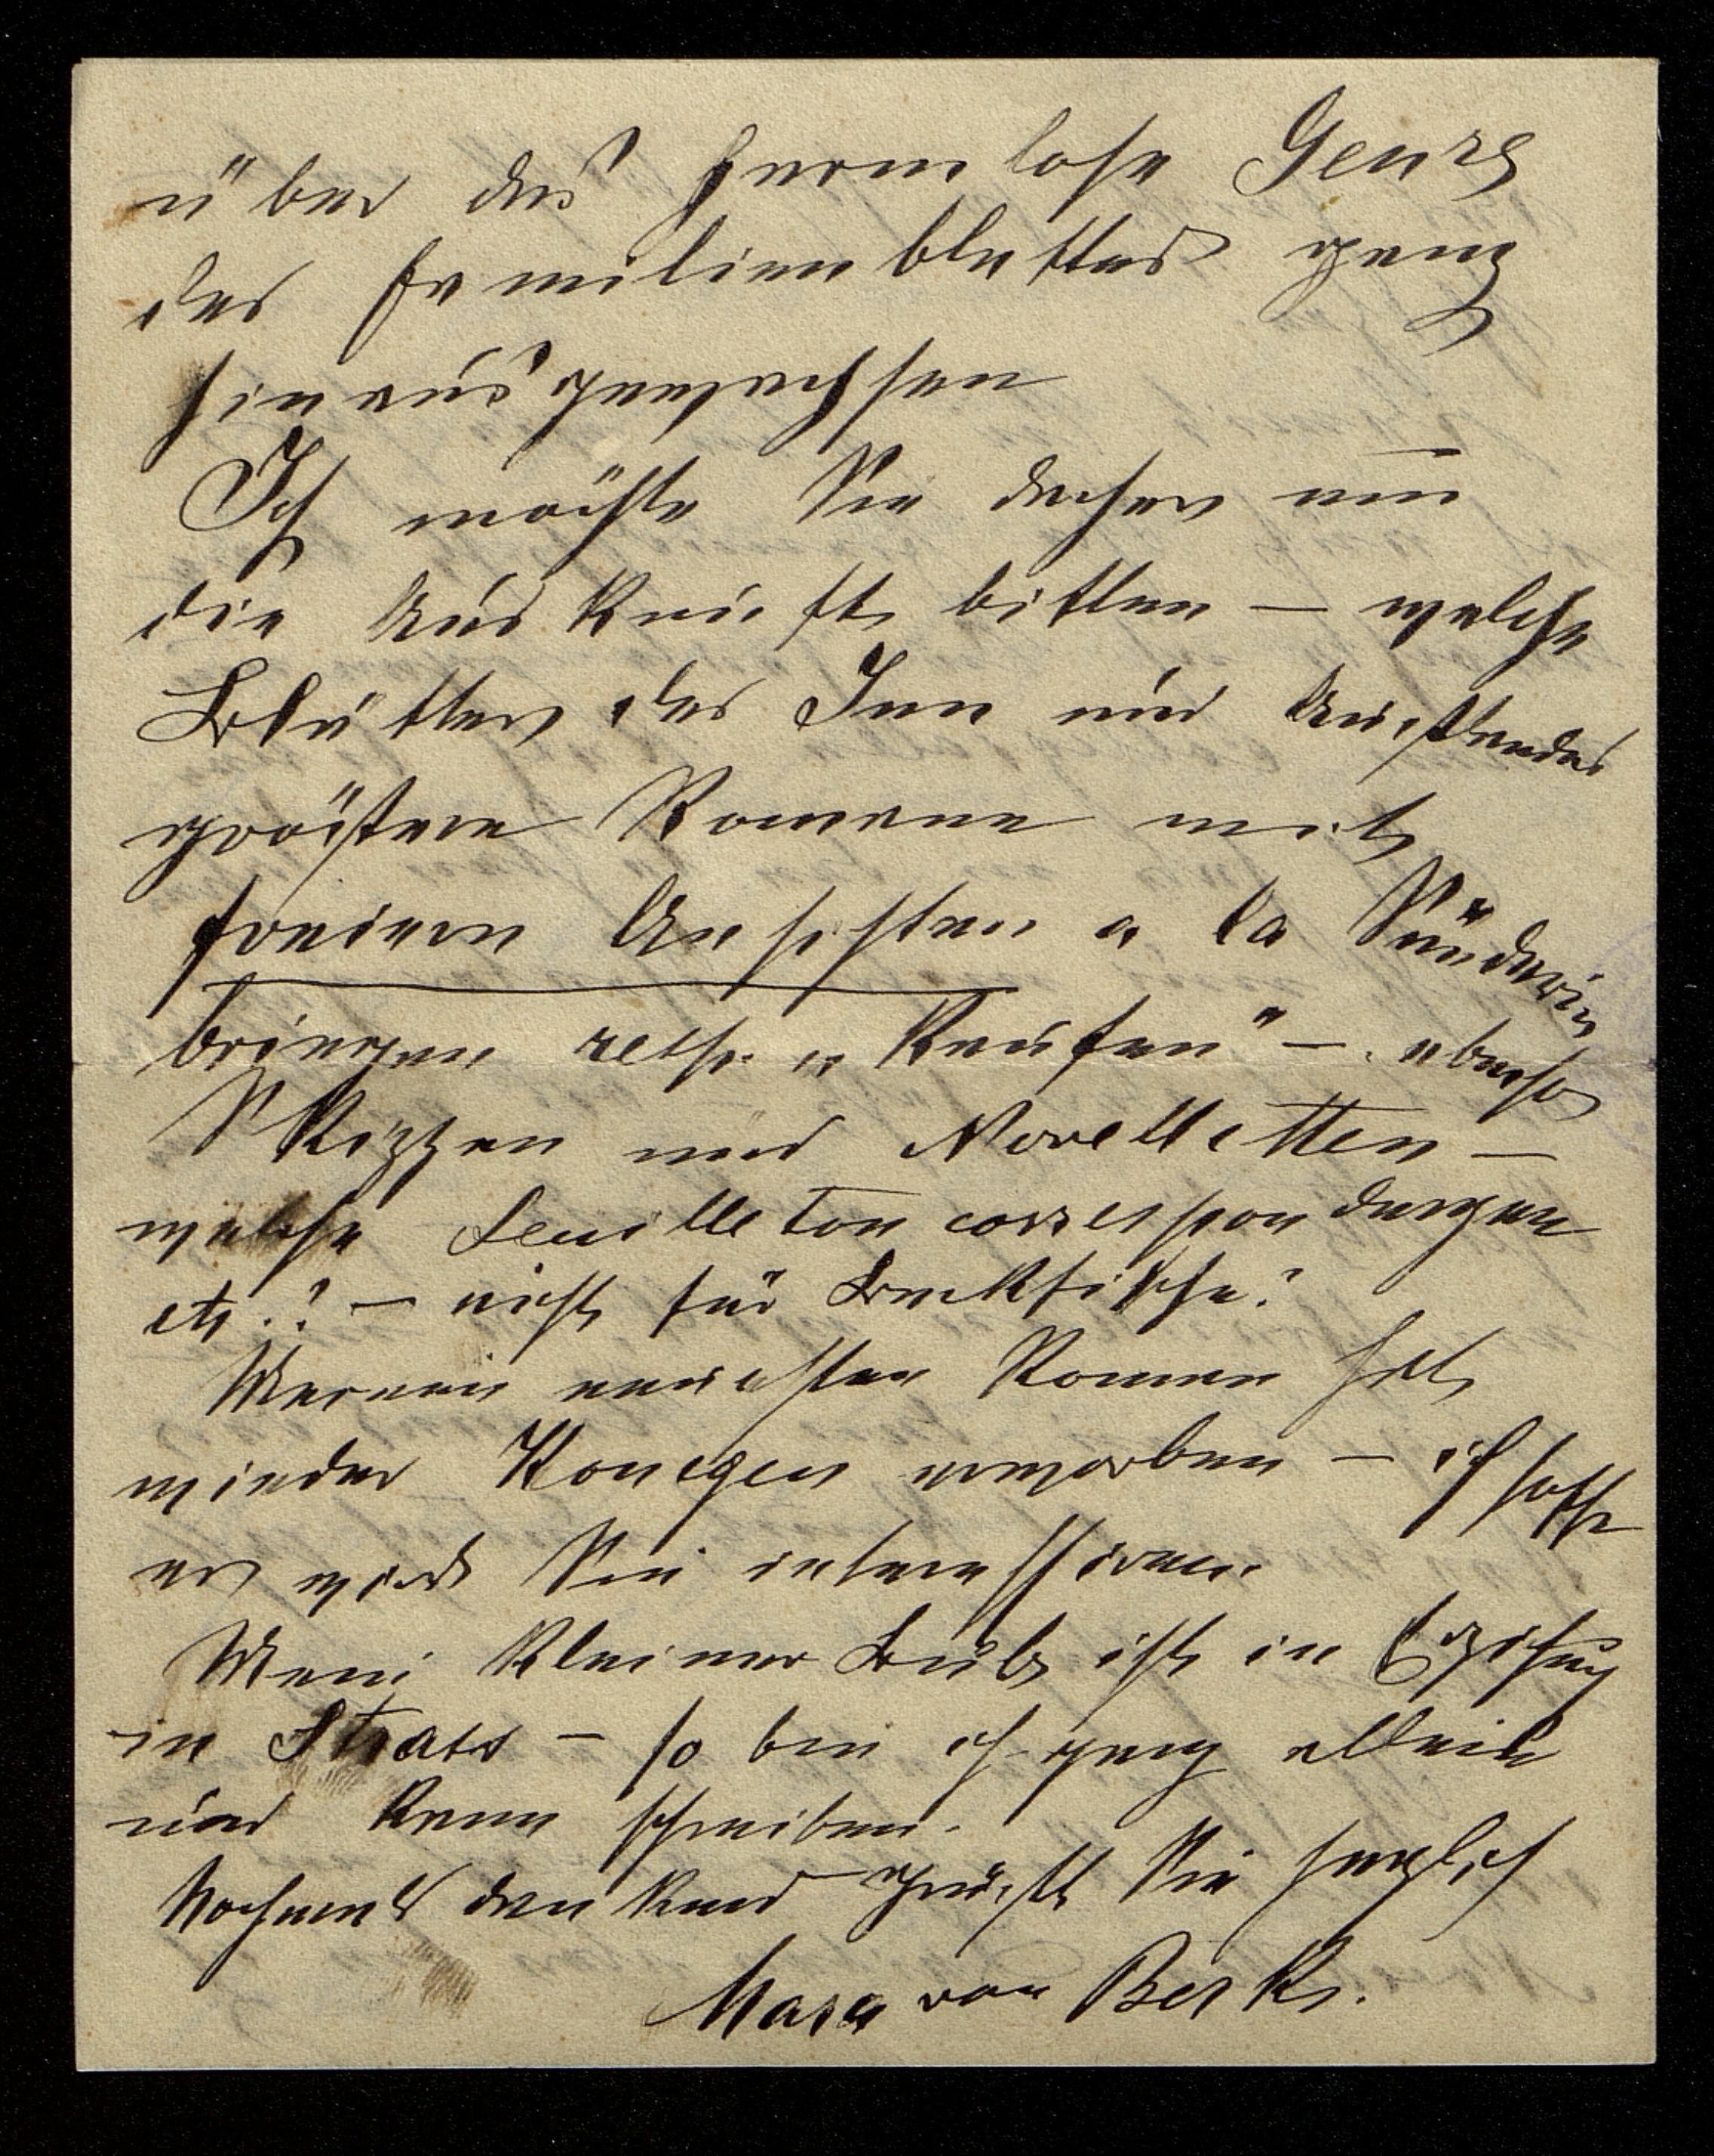 über das harmlose Genre
des Familienblattes ganz
hinausgewachsen
Ich möchte Sie daher um
die Auskunft bitten — welche
Blätter des In und Auslandes
größere Romane mit
freieren Ansichten a la Sünderin
bringen resp. „Kaufen" — ebenso
Skizzen und Novelletten —
welche Feuilleton correspondenzen
etc.? — nicht für Backfische?
Meinen neuesten Roman hat
wieder Konegen erworben — ich hoffe
er wird Sie interessiren.
Mein kleiner Bub ist in Erziehung
in Strass — so bin ich ganz allein
und kann schreiben.
Nochmals dankend grüßt Sie herzlich
Mara von Berks.